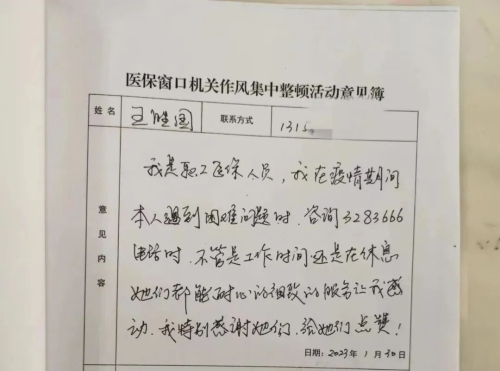 医保窗口机关作风集中整顿活动意见簿
姓名 王胜国 联系方式 1315
意见内容
我是职工医保人员，我在疫情期间
本人遇到困难问题时，咨询3283666
电话时，不管是工作时间还是在休息
她们都能耐心的细致的服务让我感
动，我特别感谢她们，给她们点赞！
日期：2023年1月30日